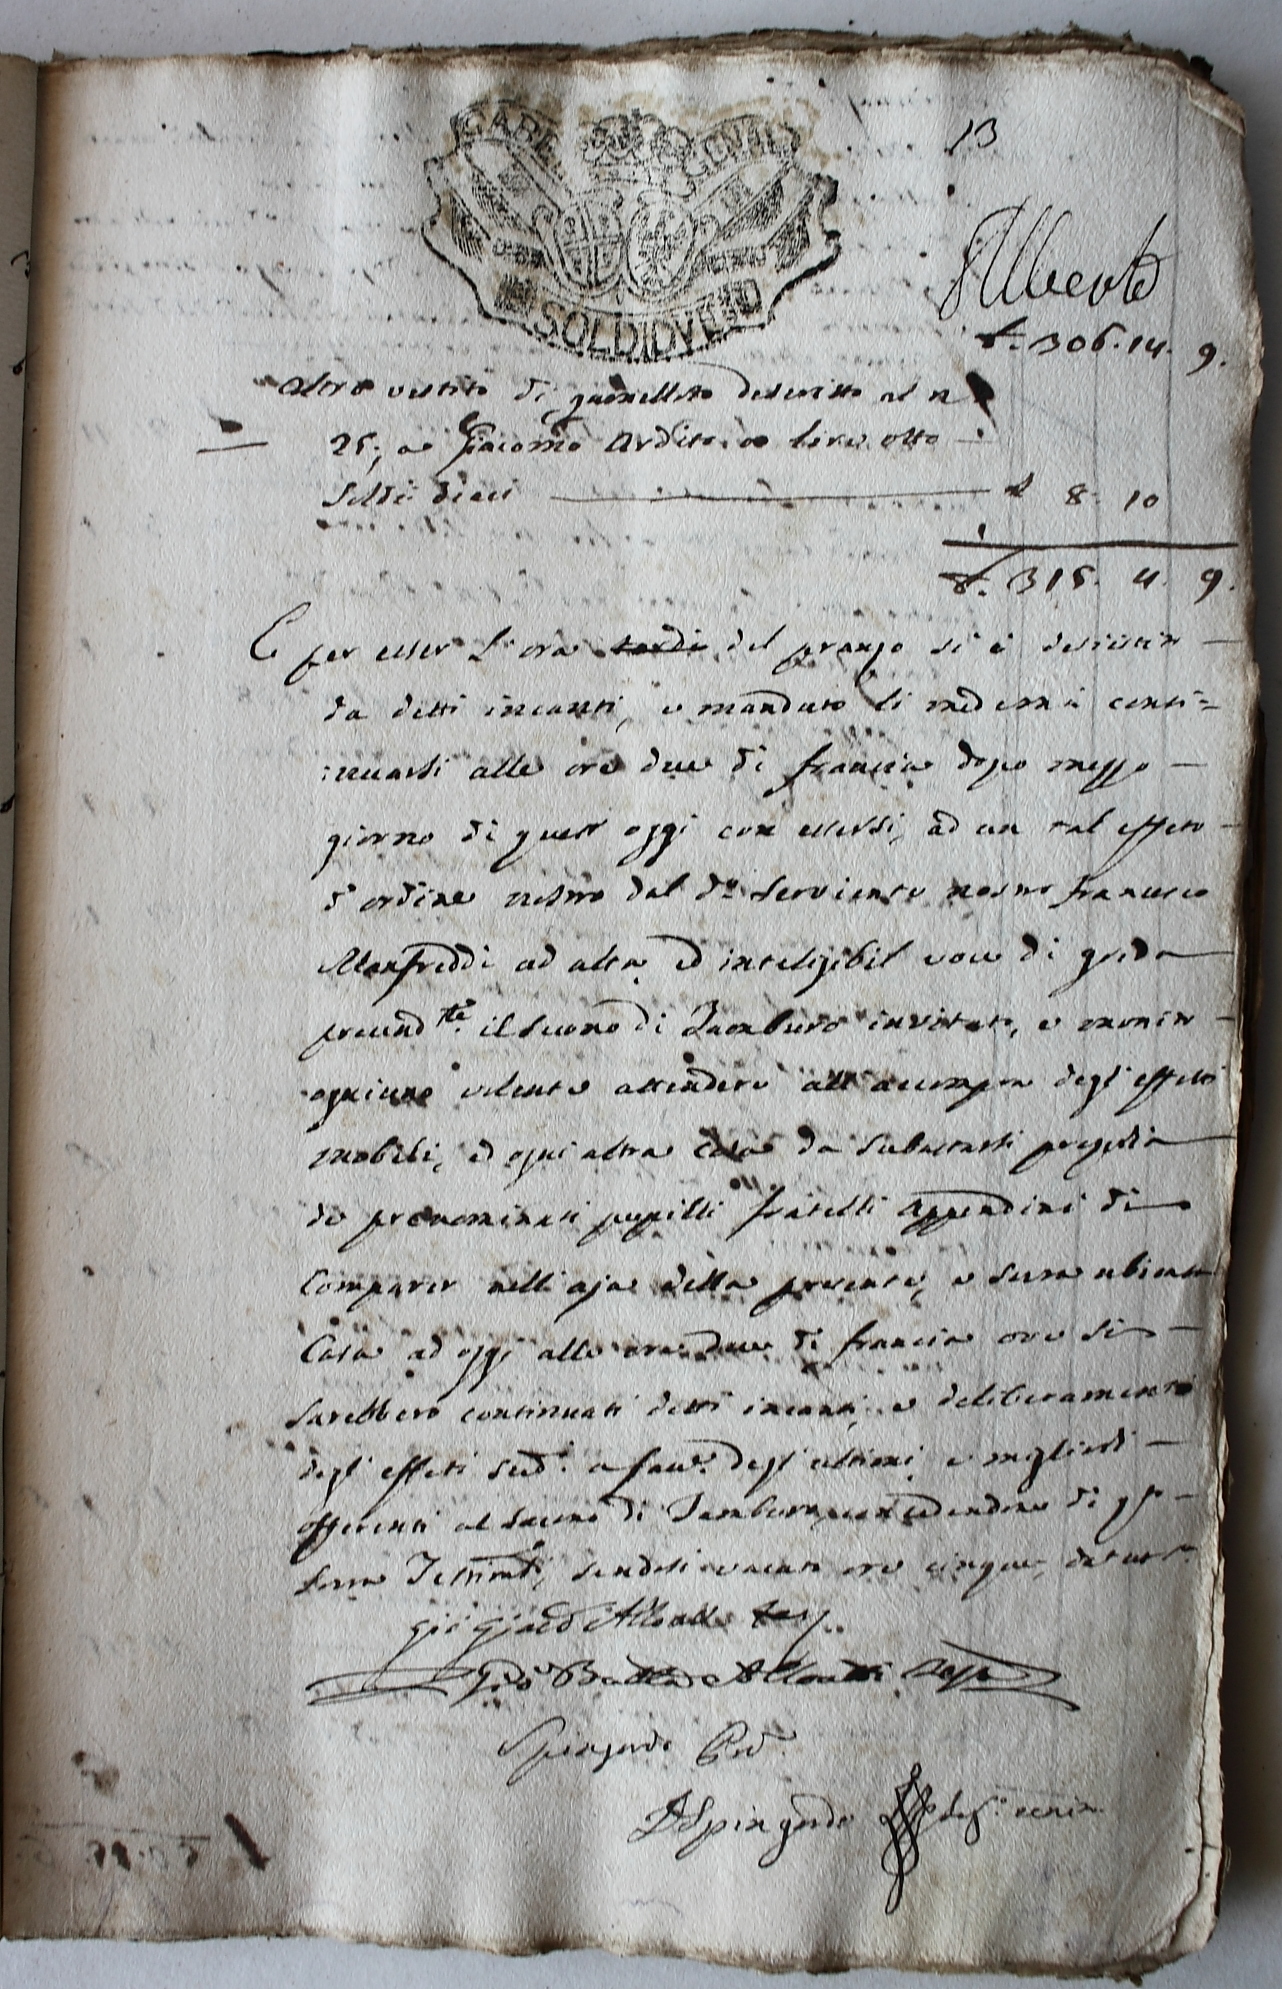 13
CARI CIVIL
SOLDI DVE
Alberto
£. 306. 14. 9.
Altro vestito di gamellotto descritto al n
25, a Giacomo Ardito a lire otto
soldi dieci £ 8. 10
£. 315. 4. 9.
E per esser l'ora tardi del pranzo si è desistito
da detti incanti, e mandato li medemi conti=
nuarsi alle ore due di francia dopo mezzo
giorno di quest' oggi con essersi, ad un tal effeto
d'ordine nostro dal do. serviente nostro francesco
Manfreddi ad alta, ed inteligibil voce di grida
preced.te il suono di Tamburo invitato, e monito
ogniuno volente attendere all' accompra degl' effetti
mobili, ed ogni altra cosa da subastarsi
de prenominati pupilli fratelli Appendini di
comparer nell' aja della presente, e sovra
Casa ad oggi alle ore due di francia ove si
sarebbero continuati detti incanti, e deliberamento
degl' effeti sud.i a fav.e degl' ultimi, e migliori
offerenti al suono di Tamburo, di
Testimoni, sendosi vacato ore cinque,
Gio Batta
Spingardo
Spingardo